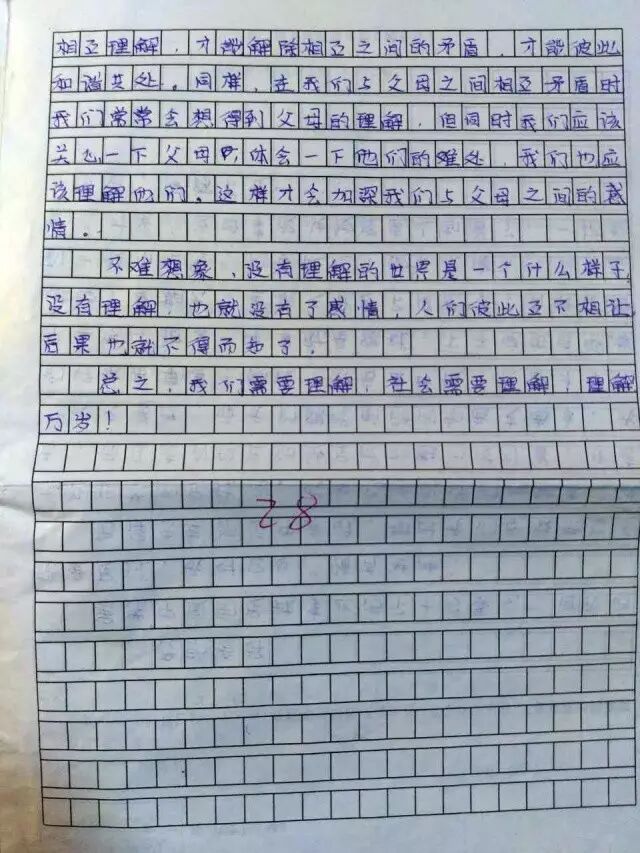 相互理解，才能解除相互之间的矛盾，才能彼此
和谐共处。同样，在我们与父母之间相互矛盾时
我们常常会想得到父母的理解，但同时我们应该
关心一下父母，体会一下他们的难处，我们也应
该理解他们。这样才会加深我们与父母之间的感
情。
不难想象，没有理解的世界是一个什么样子，
没有理解，也就没有了感情，人们彼此互不相让，
后果也就不得而知了。
总之，我们需要理解，社会需要理解，理解
万岁！
28